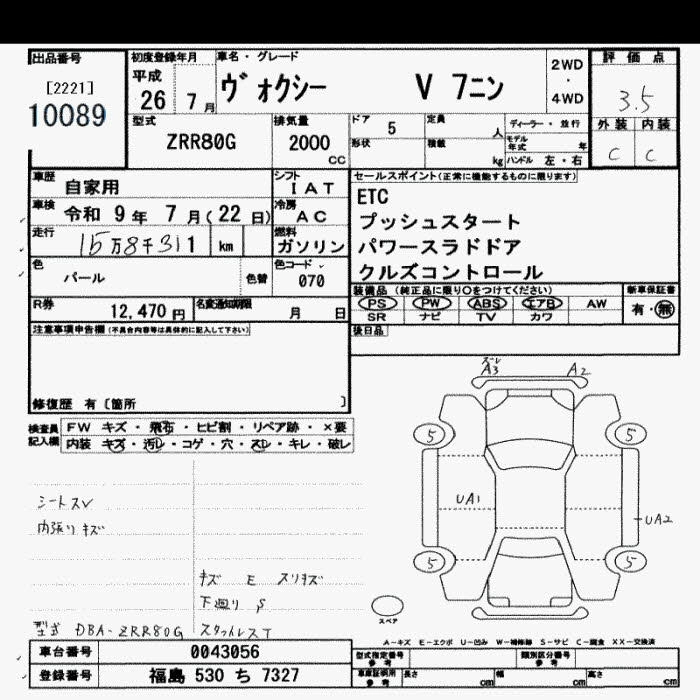 出品番号
[2221]
10089
初度登録年月
平成
26 7 月
車名・グレード
ヴォクシー V 7ニン
2WD
・
4WD
評価点
3.5
外装 内装
C C
型式
ZRR80G
排気量
2000
CC
ドア
5
定員
人
形状
積載
kg
ディーラー・並行
モデル年式
年
ハンドル 左・右
車歴
自家用
シフト
IAT
車検
令和 9 年 7 月(22 日)
冷房
AC
走行
15万8千311 km
燃料
ガソリン
色
パール
色替
色コード
070
R券
12,470 円
名変通知期限
月 日
セールスポイント(正常に機能するものに限ります)
ETC
プッシュスタート
パワースラドドア
クルズコントロール
装備品 (純正品に限り○をつけてください)
新車保証書
PS PW ABS エアB AW
SR ナビ TV カワ
有・無
後日品
注意事項申告欄(不具合内容等は具体的に記入して下さい)
修復歴 有〔箇所 〕
検査員記入欄
FW キズ・飛石・ヒビ割・リペア跡・×要
内装 キズ・汚レ・コゲ・穴・スレ・キレ・破レ
シートスレ
内張りキズ
キズ E スリキズ
下廻り S
型式 DBA-ZRR80G スタットレスT
ズレ
A3 A2
5 5
UA1
UA2
5 5
スペア
A-キズ E-エクボ U-凹み W-補修跡 S-サビ C-腐食 XX-交換済
車台番号
0043056
登録番号
福島 530 ち 7327
型式指定番号
参考
類別区分番号
参考
車庫証明用
参考
長さ cm
幅 cm
高さ cm